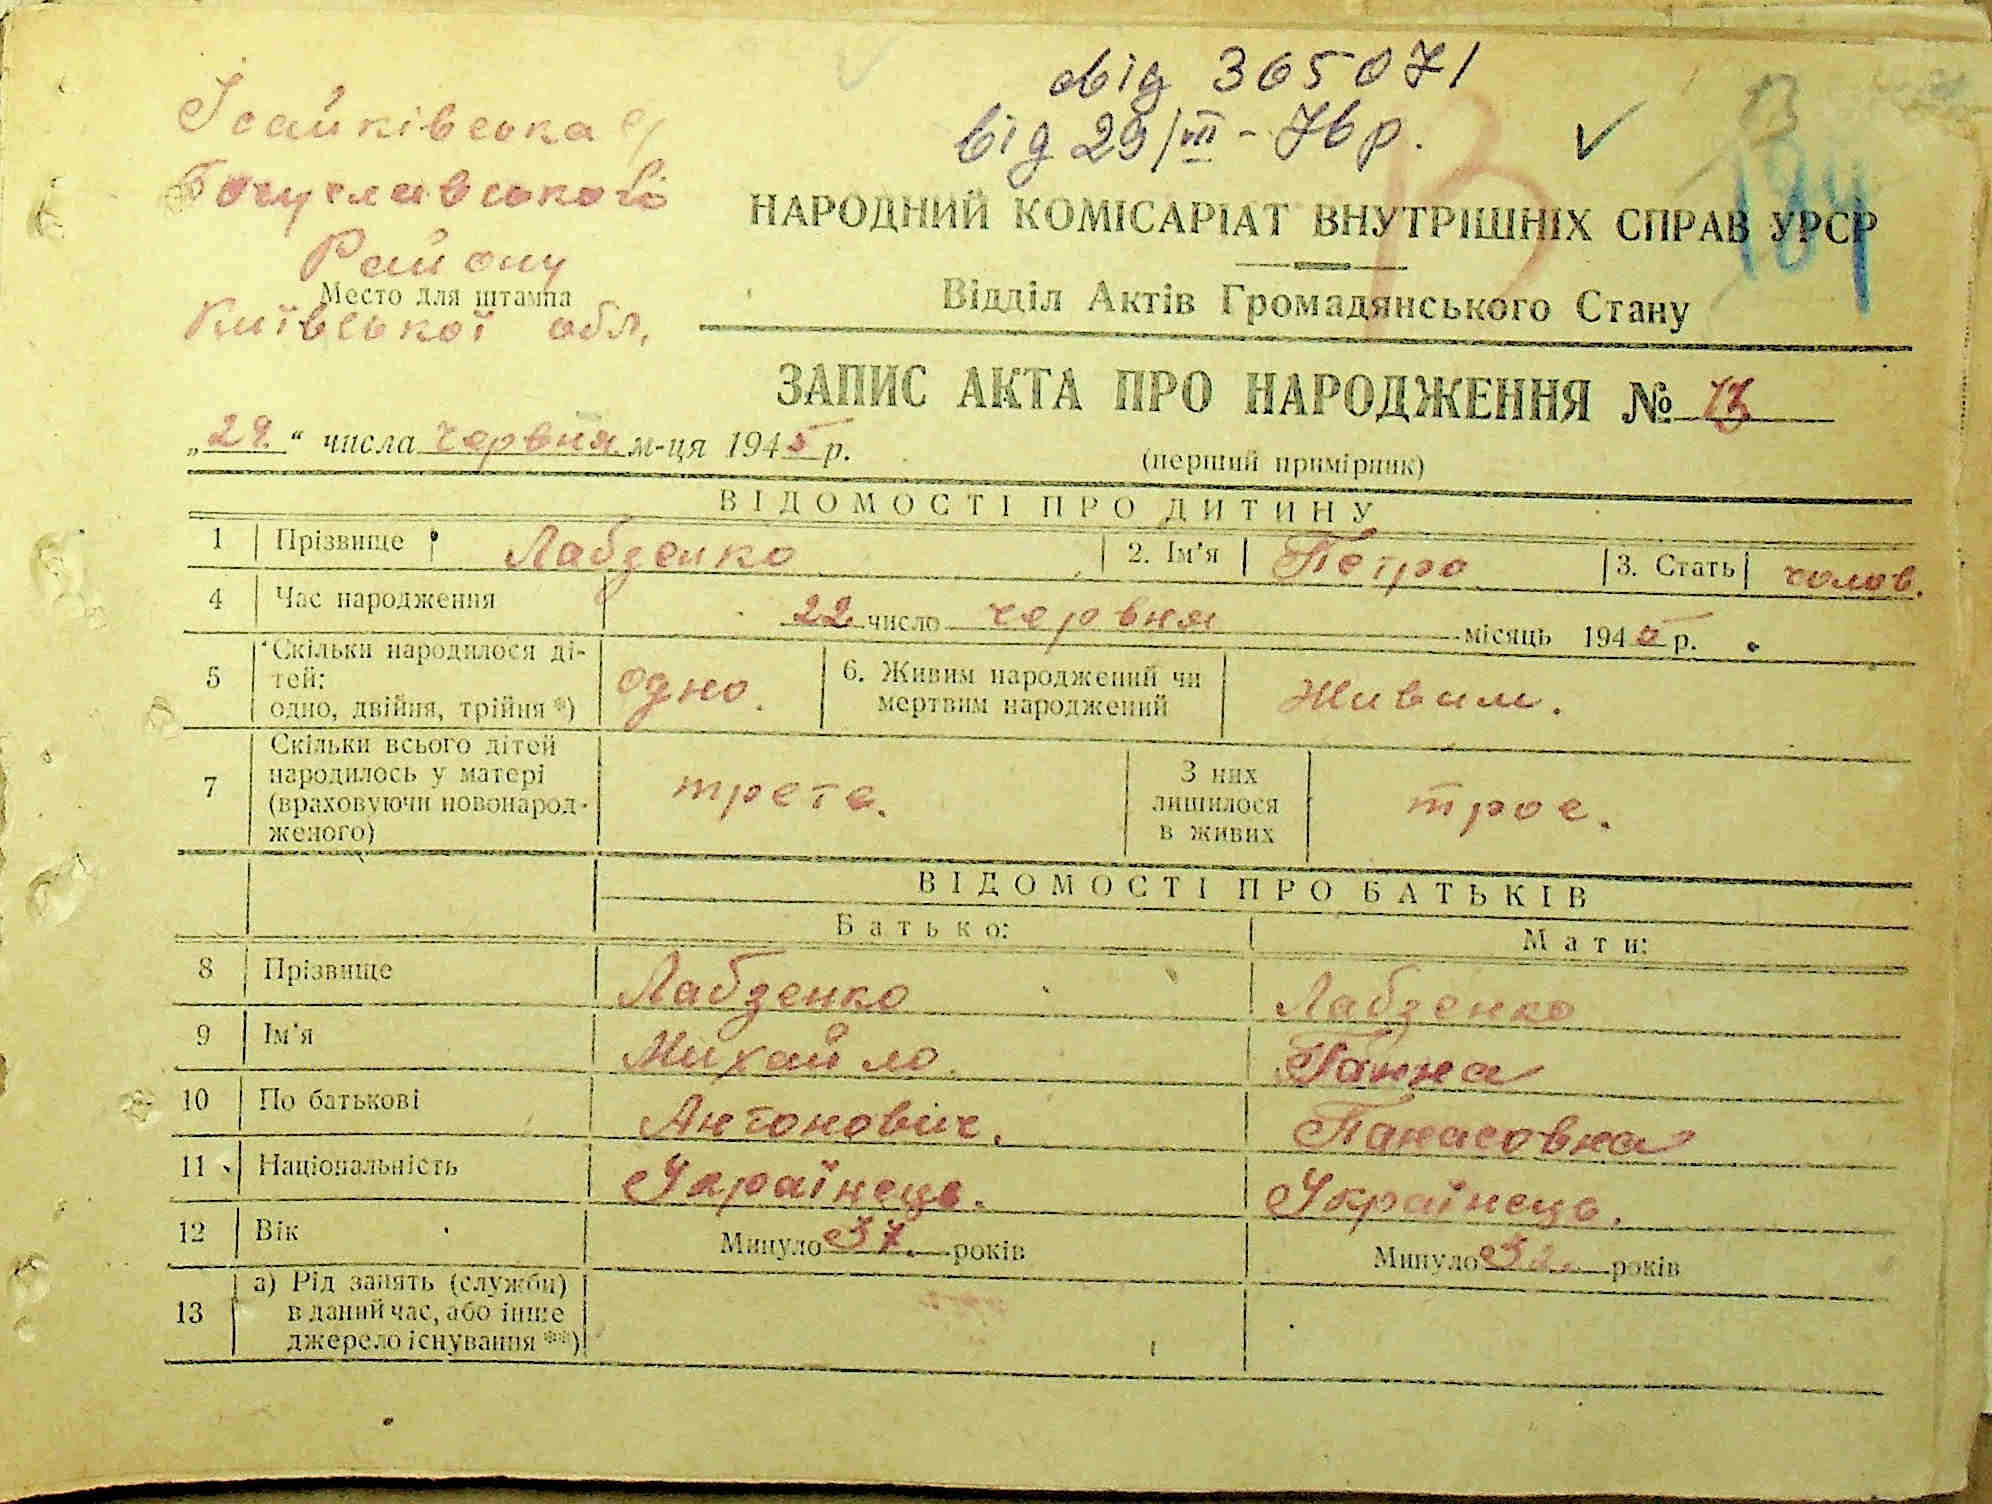 від 365071
від 29/III - 76 р.
Ісайківська с/
Богуславського
Району
Место для штампа
Київської обл.
13
184
НАРОДНИЙ КОМІСАРІАТ ВНУТРІШНІХ СПРАВ УРСР
Відділ Актів Громадянського Стану
ЗАПИС АКТА ПРО НАРОДЖЕННЯ № 13
„29.“ числа червня м-ця 1945 р.
(перший примірник)
ВІДОМОСТІ ПРО ДИТИНУ
1 Прізвище Лабзенко 2. Ім'я Петро 3. Стать чолов.
4 Час народження 22 число червня місяць 1945 р.
5 Скільки народилося ді-
тей:
одно, двійня, трійня *) одно. 6. Живим народжений чи
мертвим народжений Живим.
7 Скільки всього дітей
народилось у матері
(враховуючи новонарод-
женого) трете. З них
лишилося
в живих трое.
ВІДОМОСТІ ПРО БАТЬКІВ
Батько: Мати:
8 Прізвище Лабзенко Лабзенко
9 Ім'я Михайло. Ганна
10 По батькові Антонович. Панасовна
11 Національність Українець. Українець.
12 Вік Минуло 37. років Минуло років
13 а) Рід занять (служби)
в даний час, або інше
джерело існування **)